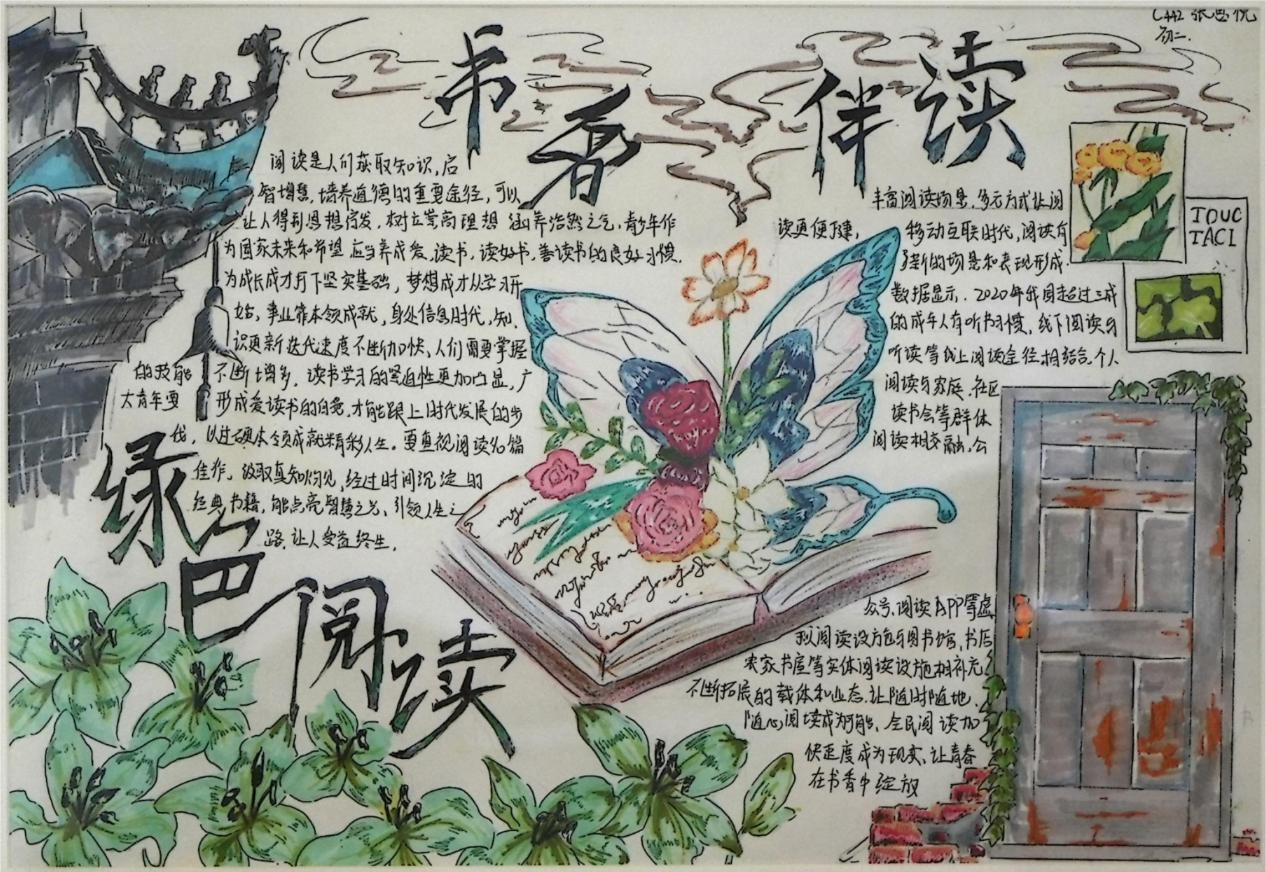 初二.
书香伴读
阅读是人们获取知识,启
智增慧,培养道德的重要途径,可以
让人得到思想启发,树立崇高理想,涵养浩然之气,青少年作
为国家未来和希望,应当养成爱读书,读好书,善读书的良好习惯.
为成长成才打下坚实基础,梦想成才从学习开
始,事业靠本领成就,身处信息时代,知
识更新迭代速度不断加快,人们需要掌握
的技能 不断增多,读书学习的紧迫性更加凸显,广
大青年要 形成爱读书的自觉,才能跟上时代发展的步
伐,以过硬本领成就精彩人生。要重视阅读名篇
佳作,汲取真知灼见,经过时间沉淀的
经典书籍,能点亮智慧之光,引领人生之
路,让人受益终生,
绿色阅读
丰富阅读场景,多元方式让阅
读更便捷, 移动互联时代,阅读有
了新的场景和表现形成.
数据显示.2020年我国超过三成
的成年人有听书习惯,线下阅读与
听读等线上阅读途径相结合,个人
阅读与家庭,社区
读书会等群体
阅读相交融,公
众号,阅读APP等虚
拟阅读设施与图书馆,书店
农家书屋等实体阅读设施相补充
不断拓展的载体和业态.让随时随地,
随心阅读成为可能,全民阅读加
快速度成为现实,让青春
在书香中绽放
TOUC
TACI